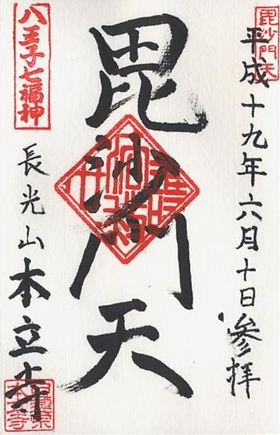 毘沙門天
平成十九年六月十日参拝
毘沙門天
八王子七福神
長光山本立寺